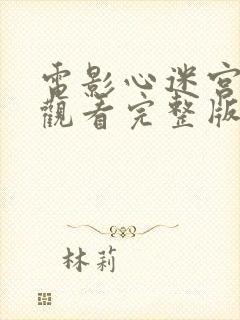 電影心迷宮
觀看完整版
林莉